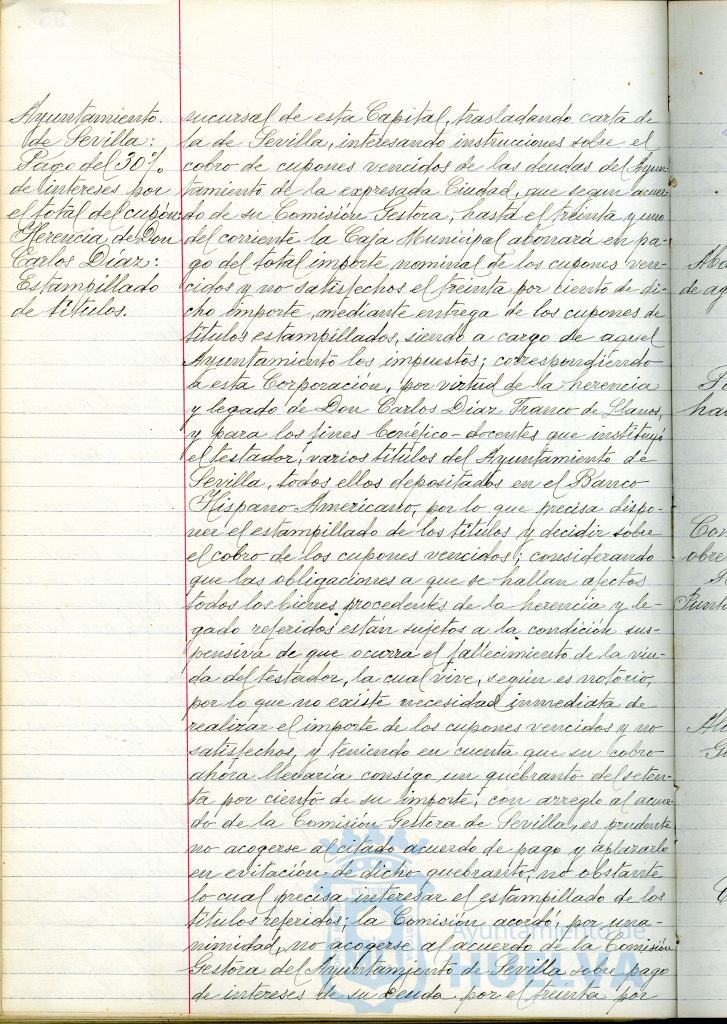 Ayuntamiento.
de Sevilla:
Pago del 30%
de intereses por
el total del cupón:
Herencia de Don
Carlos Díaz:
Estampillado
de títulos.
sucursal de esta Capital, trasladando carta de
la de Sevilla, interesando instrucciones sobre el
cobro de cupones vencidos de las deudas del Ayun-
tamiento de la expresada Ciudad, que según acuer-
do de su Comisión Gestora, hasta el treinta y uno
del corriente la Caja Municipal abonará en pa-
go del total importe nominal de los cupones ven-
cidos y no satisfechos el treinta por ciento de di-
cho importe, mediante entrega de los cupones de
títulos estampillados, siendo a cargo de aquel
Ayuntamiento los impuestos; correspondiendo
a esta Corporación, por virtud de la herencia
y legado de Don Carlos Díaz Franco de Llanos,
y para los fines benéfico-docentes que instituyó
el testador, varios títulos del Ayuntamiento de
Sevilla, todos ellos depositados en el Banco
Hispano Americano, por lo que precisa dispo-
ner el estampillado de los títulos y decidir sobre
el cobro de los cupones vencidos; considerando
que las obligaciones a que se hallan afectos
todos los bienes procedentes de la herencia y le-
gado referidos están sujetos a la condición sus-
pensiva de que ocurra el fallecimiento de la viu-
da del testador, la cual vive, según es notorio,
por lo que no existe necesidad inmediata de
realizar el importe de los cupones vencidos y no
satisfechos, y teniendo en cuenta que su cobro
ahora llevaría consigo un quebranto del seten-
ta por ciento de su importe, con arreglo al acuer-
do de la Comisión Gestora de Sevilla, es prudente
no acogerse al citado acuerdo de pago y aplazarlo
en evitación de dicho quebranto, no obstante
lo cual precisa interesar el estampillado de los
títulos referidos; la Comisión acordó, por una-
nimidad, no acogerse al acuerdo de la Comisión
Gestora del Ayuntamiento de Sevilla sobre pago
de intereses de su deuda por el treinta por
Ayuntamiento de
HUELVA